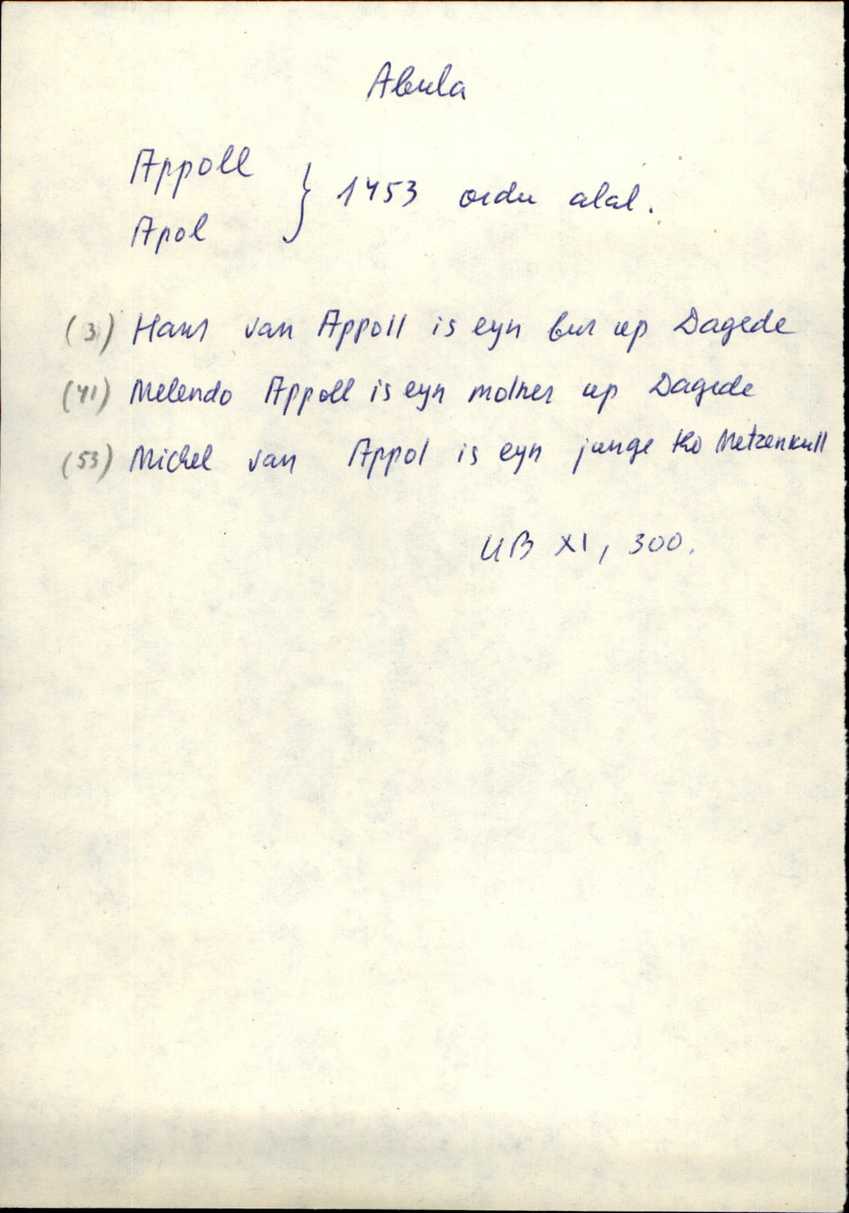 Abula
Appoll
Apol } 1453 ordu alal.
(3) Hans van Appoll is eyn bur up Dagede
(41) Melendo Appoll is eyn molner up Dagede
(53) Michel van Appol is eyn junge tho Metzenkull
UB XI, 300.